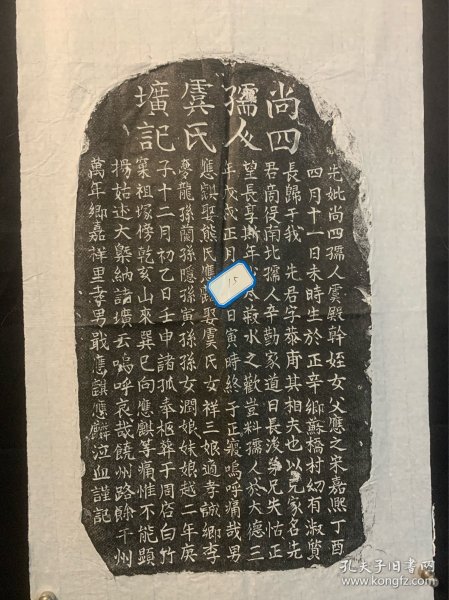 尚四
孺人
虞氏
壙記
先妣尚四孺人虞殿幹姪女父應之宋嘉熙丁酉
四月十一日未時生於正辛鄉蘇橋村幼有淑質
長歸于我 先君字恭甫其相夫也以克家名先
君商侵南北孺人辛勤家道日長後弟兄失怙正
望長享斯年菽水之歡豈料孺人於大德三
年戊戌正月日寅時終于正寢嗚呼痛哉男
應麒娶熊氏應娶虞氏女祥三娘適孝誠鄉李
夢龍孫蘭孫隱孫寅孫孫女潤娘妹娘越二年庚
子十二月初乙日壬申諸孤奉柩葬于周宕白竹
窠祖塚傍乾亥山來巽巳向應麒等痛惟不能顯
揚姑述大槩納諸壙云嗚呼哀哉饒州路餘干州
萬年鄉嘉祥里孝男戢應麒應麟泣血謹記
15
孔夫子旧书网